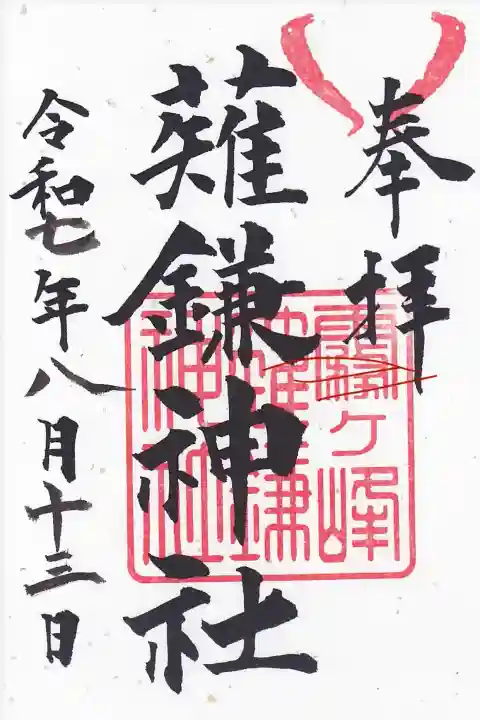 奉拝
霧ヶ峰
薙鎌
神社
薙鎌神社
令和七年八月十三日